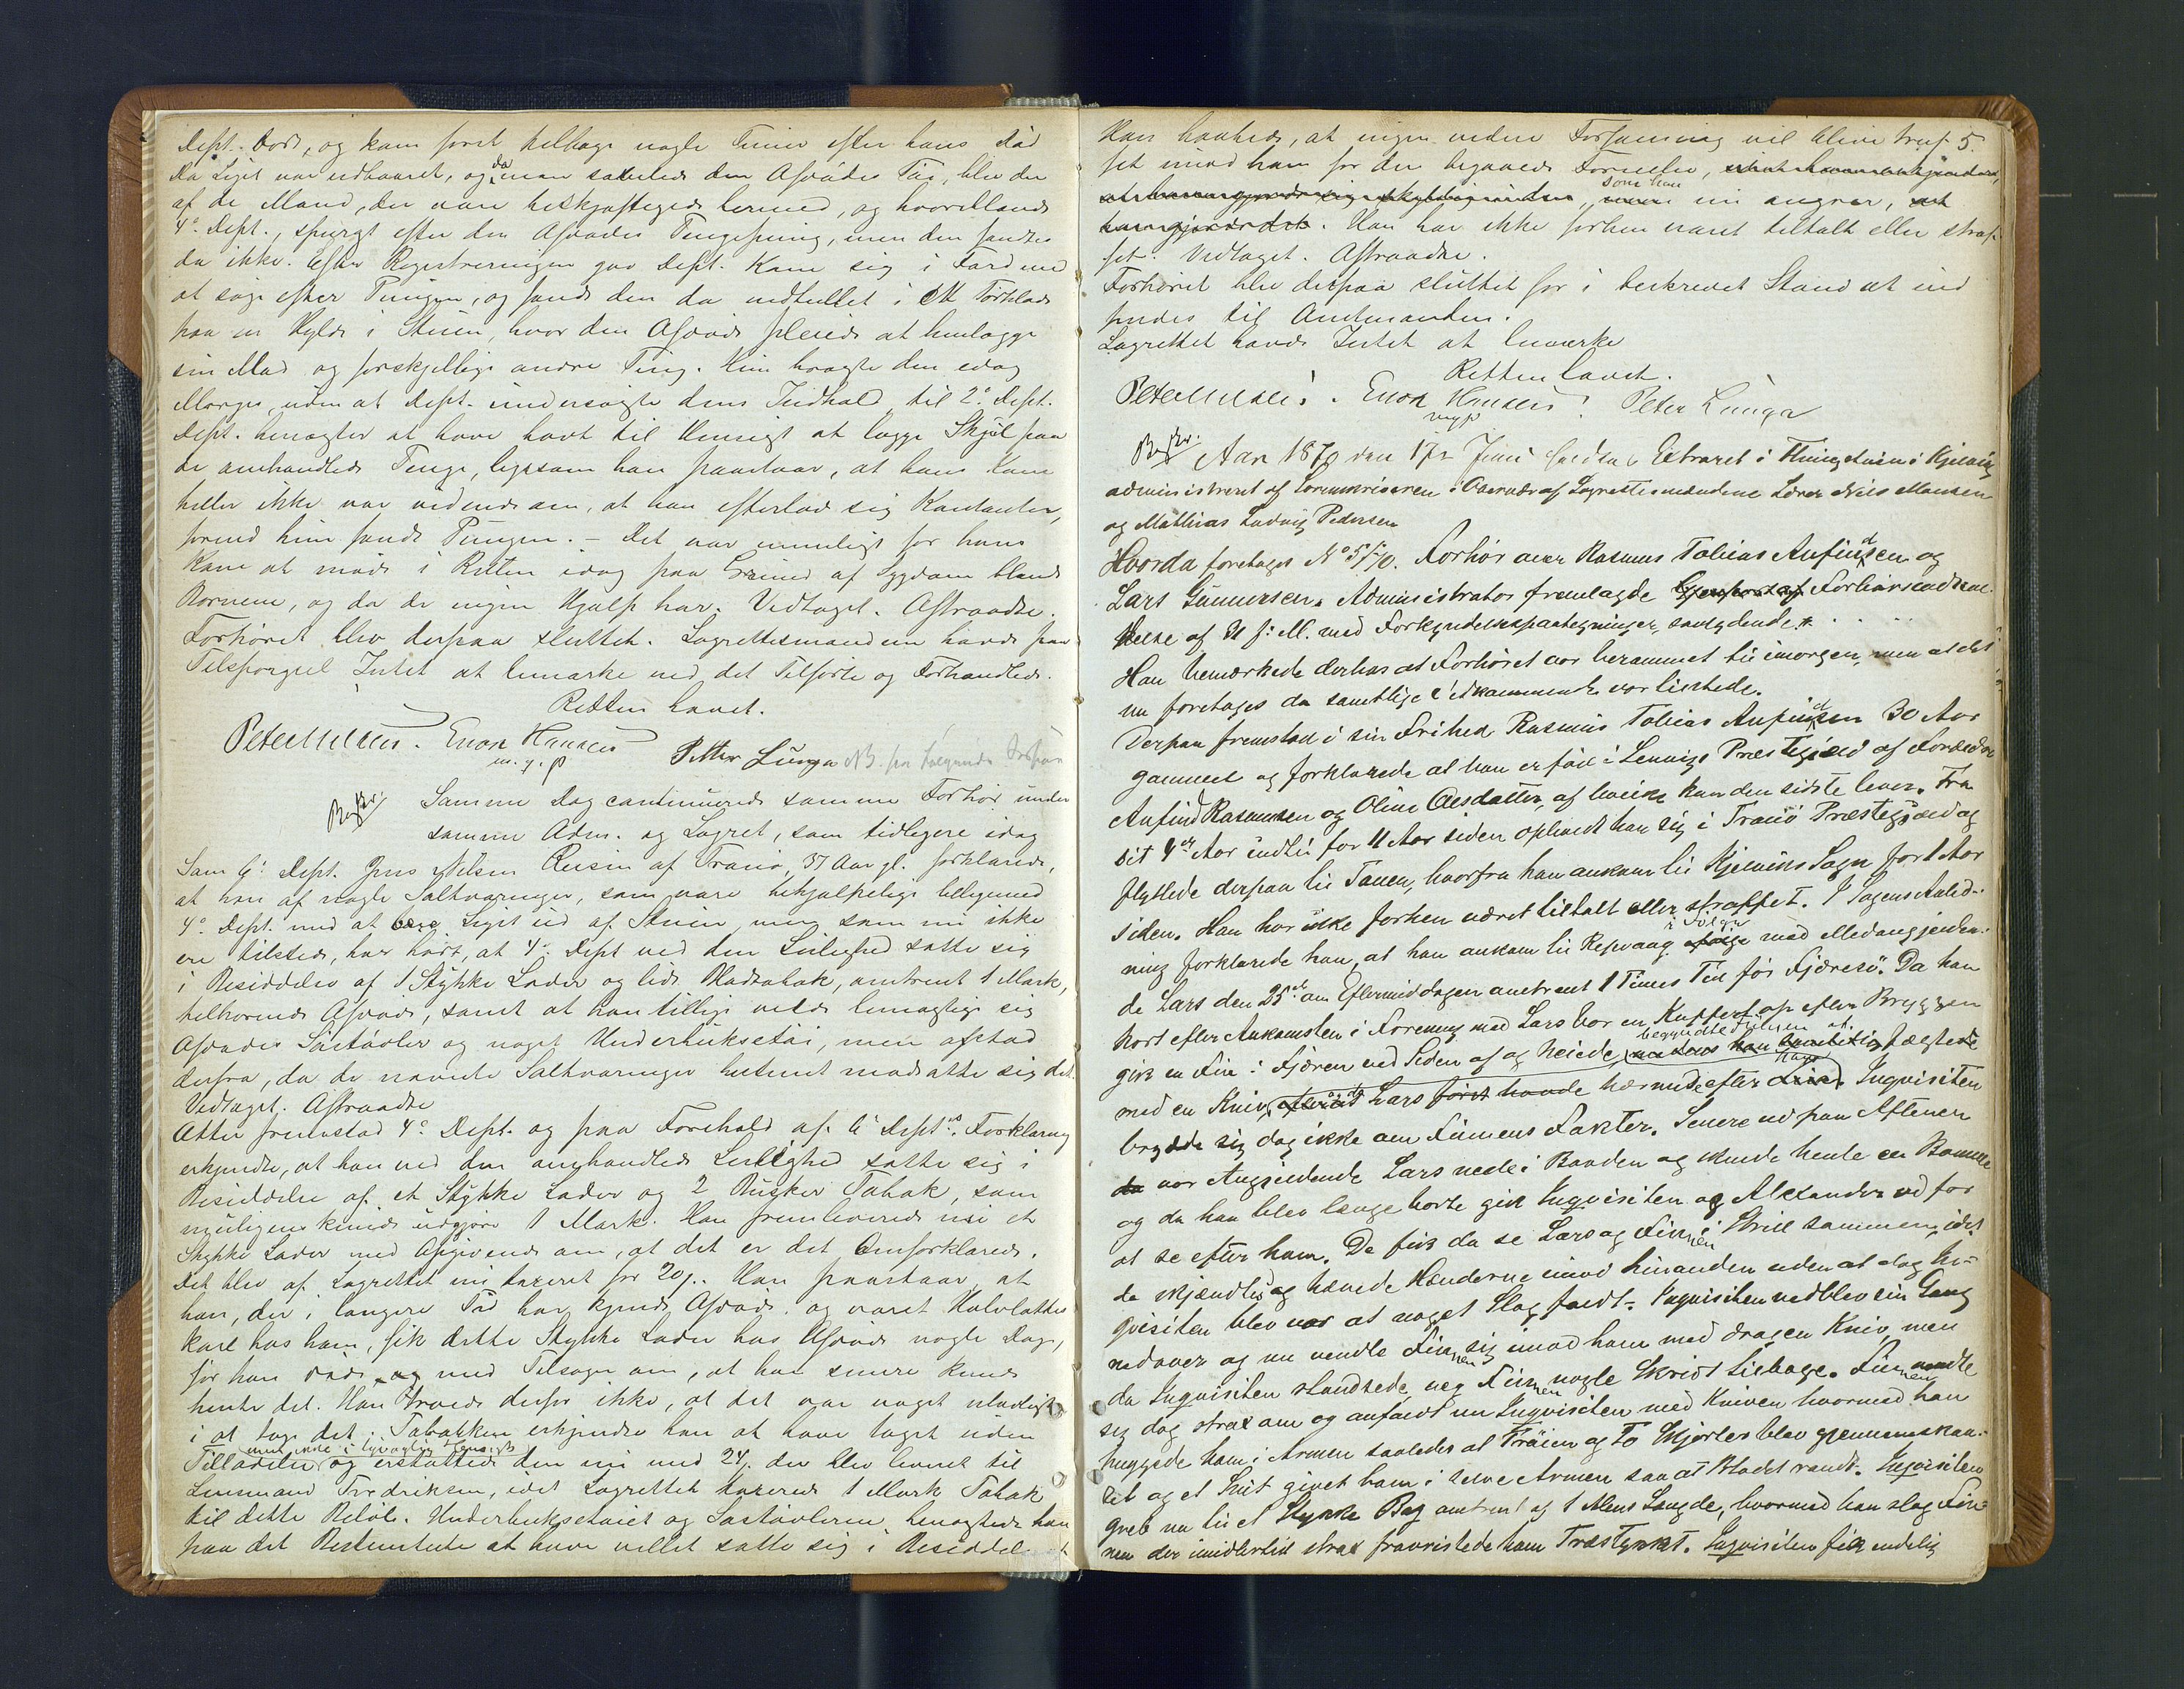 Dept. bod, og kom først tilbage nogle Timer efter hans Død
Da Liget var udbaaret, og da man samlede den Afdødes Tøi, blev der
af de Mænd, der vare beskjæftigede hermed, og hvoriblandt
4de Dept., spurgt efter den Afdødes Pengepung, men den fandtes
da ikke. Efter Registreringen gav Dept. Kone sig i Færd med
at søge efter Pungen, og fandt den da indhyllet i et Tørklæde
paa en Hylde i Stuen, hvor den Afdøde pleiede at henlægge
sin Mad og forskjellige andre Ting. Hun bragte den idag
Morges, uden at Dept. undersøgte dens Indhold, til 2de Dept.
Dept. benægter at have havt til Hensigt at lægge Skjul paa
de omhandlede Penge, ligesom han paastaar, at hans Kone
heller ikke var vidende om, at han efterlod sig Kontanter,
førend hun fandt Pungen. – Det var umuligt for hans
Kone at møde i Retten idag paa Grund af Sygdom blandt
Børnene, og da de ingen Hjælp har. Vedtaget. Aftraadte.
Forhøret blev derpaa sluttet. Lagrettesmændene havde paa
Tilspørgsel Intet at bemærke ved det Tilførte og Forhandlede.
Retten hævet.
Peter Nilsen. Enok Hansen Petter Lunga NB. paa følgende
m. p. P
Samme Dag continuerede samme Forhør under
samme Adm. og Lagret, som tidligere idag
Som 6te Dept. Jens Nilsen Reisin af Tranø, 37 Aar gl. forklarede,
at han af nogle Saltværinger, som vare behjælpelige tilligemed
4de Dept. med at bære Liget ud af Stuen men som nu ikke
ere tilstede, har hørt, at 4de Dept ved den Leilighed satte sig
i Besiddelse af 1 Stykke Læder og lidt Bladtobak, omtrent 1 Mark,
tilhørende Afdøde, samt at han tillige vilde bemægtige sig
Afdødes Søstøvler og noget Underbuksetøi, men afstod
derfra, da de nævnte Saltværinger bestemt modsatte sig det.
Vedtaget. Aftraadte
Atter fremstod 4de Dept. og paa Forehold af 6te Depts. Forklaring
erkjendte, at han ved den omhandlede Leilighed satte sig i
Besiddelse af et Stykke Læder og 2 Busker Tobak, som
muligens kunde udgjøre 1 Mark. Han fremleverede nu et
Stykke Læder med Afgivende om, at det er det Omforklarede.
Det blev af Lagrettet nu taxeret for 20 s. Han paastaar at
han, der i længere Tid har kjendt Afdøde og været Halvlots
karl hos ham, fik dette Stykke Læder hos Afdøde nogle Dage,
før han døde, og med Tilsagn om, at han senere kunde
hente det. Han troede derfor ikke, at det var noget ulovligt
i at tage det. Tobakken erkjendte han at have taget uden
men ikke i tyvagtig Hensigt
Tilladelse og erstattede den nu med 24 s. der blev leveret til
Lensmand Fredriksen, idet Lagrettet taxerede 1 Mark Tobak
til dette Beløb. Underbuksetøiet og Søstøvlerne benægtede han
paa det Bestemteste at have villet sætte sig i Besiddelse af
Han haabede, at ingen videre Forføining vil blive truf- 5.
fet imod ham for den begaaede Forseelse,
som han
nu angrer,
. Han har ikke forhen været tiltalt eller straf-
fet. Vedtaget. Aftraadte.
Forhøret blev derpaa sluttet for i beskrevet Stand at ind
sendes til Amtmanden.
Lagrettet havde Intet at bemærke
Retten hævet.
Peter Nilsen. Enok Hansen Peter Lunga
m p P
Aar 1870 den 17de Juni holdtes Extraret i Thingstuen i Kjelvig
administreret af Sorenskriveren i Overvær af Lagrettesmændene Lærer Nils Monsen
og Mathias Ludvig Pedersen
Hvorda foretoges No 5/70. Forhør over Rasmus Tobias Anfindsen og
Lars Gunnersen. Administrator fremlagde Forhørsindkal-
delse af 31 f: M. med Forkyndelsespaategninger, saalydende.
Han bemærkede derhos at Forhøret var berammet til imorgen, men at det
nu foretages da samtlige Vedkommende var tilstede.
Derpaa fremstod i sin Frihed Rasmus Tobias Anfindsen 30 Aar
gammel og forklarede at han er født i Lenvigs Præstegjæld af Forældre
Anfind Rasmussen og Oline Olesdatter, af hvilke kun den sidste lever. Fra
sit 4de Aar indtil for 11 Aar siden opholdt han sig i Tranø Præstegjæld og
flyttede derpaa til Tanen, hvorfra han ankom til Kjelvigs Sogn for 1 Aar
siden. Han har ikke forhen været tiltalt eller straffet. I Sagens Anled-
i Følge
ning forklarede han, at han ankom til Repvaag med Medangjælden-
de Lars den 25de om Eftermiddagen omtrent 1 Times Tid før Fjæresø. Da han
kort efter Ankomsten i Forening med Lars bar en Kuffert op efter Bryggen
begyndte Finnen at
gik en Fin i Fjæren ved Siden af og heiede fægtede
ham
med en Kniv Lars hermede efter Inqvisiten
brydde sig dog ikke om Finnens Fakter. Senere ud paa Aftenen
var Angjældende Lars nede i Baaden og skulde hente en Bomme
og da han blev længe borte gik Inqvisiten og Alexander ud for
at se efter ham. De fik da se Lars og Finnen i Strid sammen, idet
de skjændtes og hævede Hænderne imod hinanden uden at dog In-
qvisiten blev var at noget Slag faldt. Inqvisiten vedblev sin Gang
nedover og nu vendte Finnen sig imod ham med dragen Kniv, men
da Inqvisiten standsede veg Finnen nogle Skridt tilbage. Finnen vendte
sig dog strax om og anfaldt nu Inqvisiten med Kniven hvormed han
huggede ham i Armen saaledes at Trøien og to Skjorter blev gjennemskaa-
ret og et Snit givet ham i selve Armen saa at Blodet randt. Inqvisiten
greb nu til et Stykke Bag omtrent af 1 Alens Længde, hvormed han slog Fin-
nen der imidlertid strax fravristede ham Træstykket. Inqvisiten fik endelig